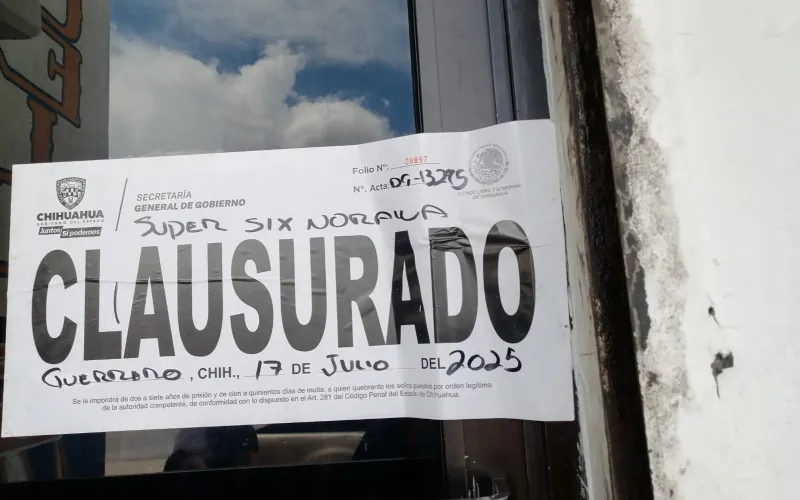 CHIHUAHUA
GOBIERNO DEL ESTADO
Juntos Sí podemos
SECRETARÍA
GENERAL DE GOBIERNO
Folio Nº: 08897
Nº. Acta: DG-13295
ESTADO LIBRE Y SOBERANO
DE CHIHUAHUA
SUPER SIX NORAWA
CLAUSURADO
GUERRERO, CHIH., 17 DE JULIO DEL 2025
Se le impondrá de dos a siete años de prisión y de cien a quinientos días de multa, a quien quebrante los sellos puestos por orden legítima
de la autoridad competente, de conformidad con lo dispuesto en el Art. 281 del Código Penal del Estado de Chihuahua.